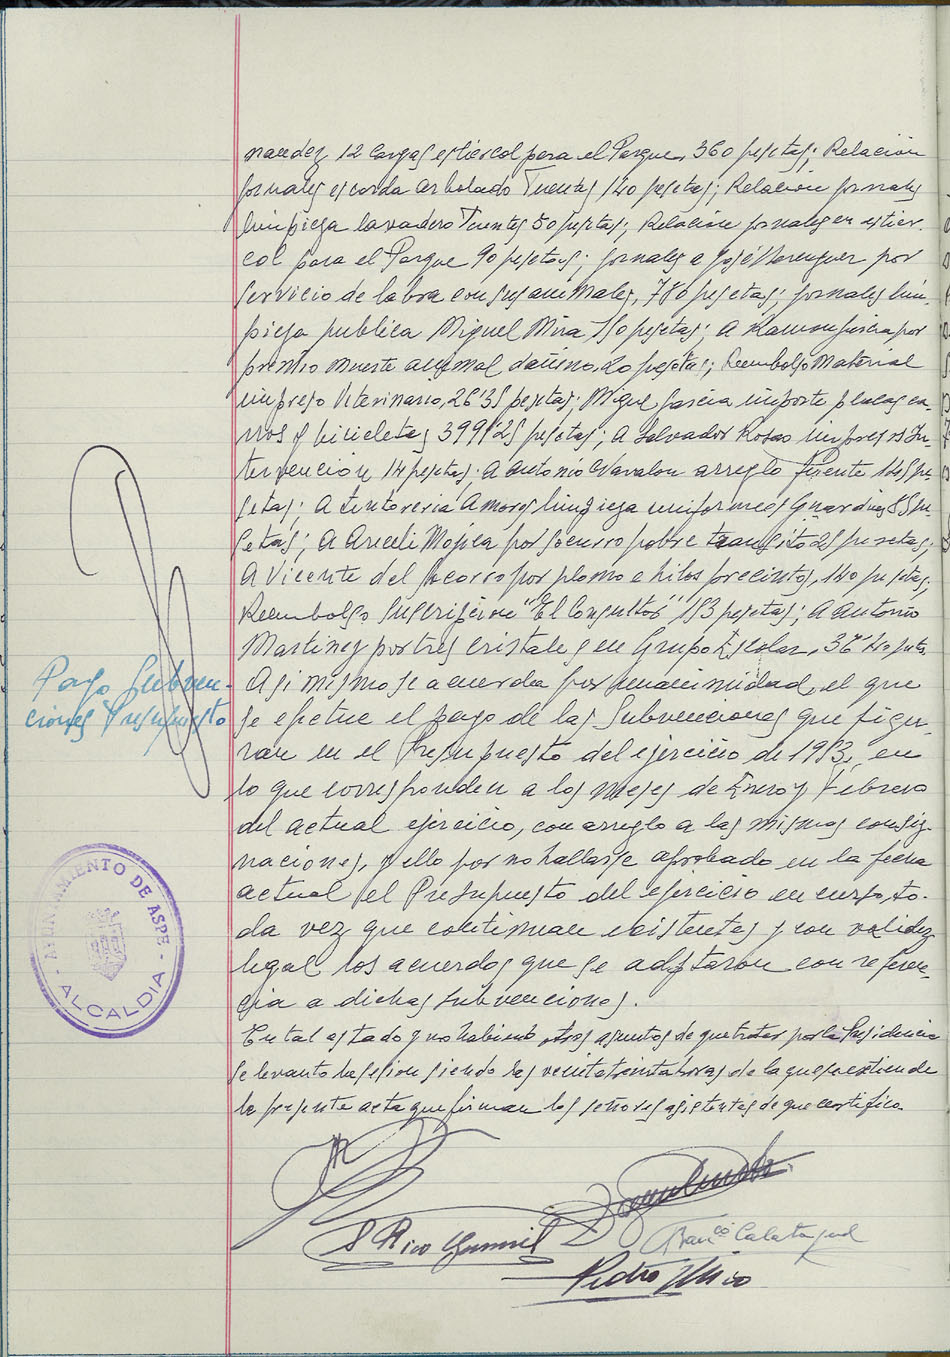 nandez 12 cargas estiercol para el Parque, 360 pesetas; Relación
jornales escorda arbolado Fuentes 140 pesetas; Relación jornales
limpieza lavadero Fuentes 50 pesetas; Relación jornales en estier-
col para el Parque 90 pesetas; jornales a José Berenguer por
servicio de labra con sus animales, 780 pesetas; jornales lim
pieza publica Miguel Mira 150 pesetas; A Ramon por
premio muerte animal dañino, 20 pesetas; Reembolso Material
impreso Veterinario, 26'35 pesetas; Miguel Garcia importe placas ca-
rros y bicicletas 3991'25 pesetas; A Salvador Rosas impresos In-
tervención 14 pesetas; A Antonio Navalon arreglo fuente 145 pe-
setas; A Tintoreria Amoros limpieza uniformes Guardias 85 pe-
setas; A Araceli Mojica por socorro pobre transito 25 pesetas;
A Vicente del Socorro por plomo e hilos precintos, 140 pesetas;
Reembolso suscripción "El Consultor" 153 pesetas; A Antonio
Martinez por tres cristales en Grupo Escolar, 36'40 pets.
Asi mismo se acuerda por unanimidad, el que
Pago Subven-
ciones Presupuesto
se efetue el pago de las Subvenciones que figu-
ran en el Presupuesto del ejercicio de 1953, en
lo que corresponden a los meses de Enero y Febrero
del actual ejercicio, con arreglo a las mismas consig-
naciones, y ello por no hallarse aprobado en la fecha
actual el Presupuesto del ejercicio en curso, to-
da vez que continuan existentes y con validez
legal los acuerdos que se adptaron con referen-
cia a dichas subvenciones.
AYUNTAMIENTO DE ASPE
- ALCALDIA -
En tal estado y no habiendo otros asuntos de que tratar por la Presidencia
se levanto la sesion siendo las veintitreinta horas de la que se extiende
la presente acta que firman los señores asistentes de que certifico.
S Rico
Franco Calatayud
Pedro Mico